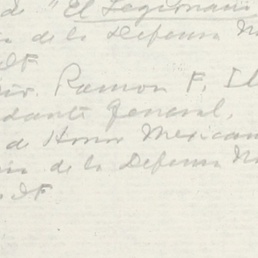 de "El Legionario
de la Defensa N
DF
Ramon F. I
dante General,
de Honor Mexican
de la Defensa N
DF